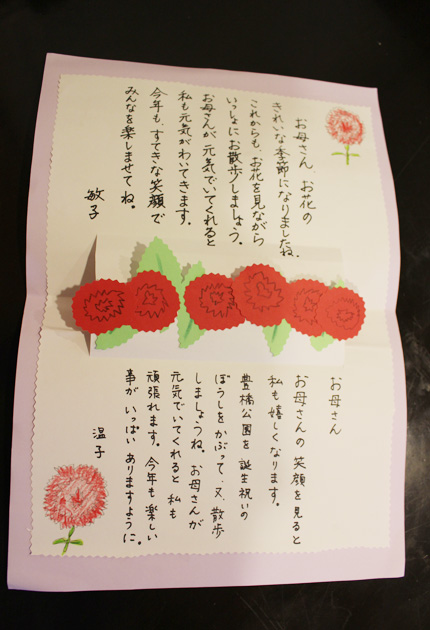 お母さん、お花の
きれいな季節になりましたね。
これからも、お花を見ながら
いっしょにお散歩しましょう。
お母さんが、元気でいてくれると
私も元気がわいてきます。
今年も、すてきな笑顔で
みんなを楽しませてね。
敏子
お母さん
お母さんの笑顔を見ると
私も嬉しくなります。
豊橋公園を誕生祝いの
ぼうしをかぶって、又、散歩
しましょうね。お母さんが
元気でいてくれると私も
頑張れます。今年も楽しい
事がいっぱいありますように。
温子